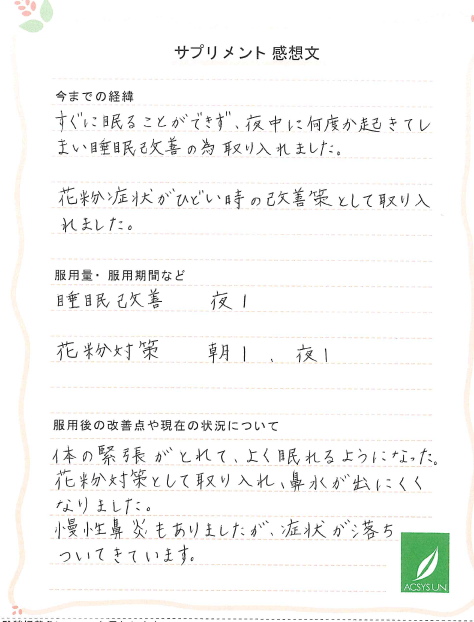 サプリメント 感想文
今までの経緯
すぐに眠ることができず、夜中に何度か起きてし
まい睡眠改善の為取り入れました。
花粉症状がひどい時の改善策として取り入
れました。
服用量・服用期間など
睡眠改善 夜1
花粉対策 朝1、夜1
服用後の改善点や現在の状況について
体の緊張がとれて、よく眠れるようになった。
花粉対策として取り入れ、鼻水が出にくく
なりました。
慢性鼻炎もありましたが、症状が落ち
ついてきています。
ACSYSUN